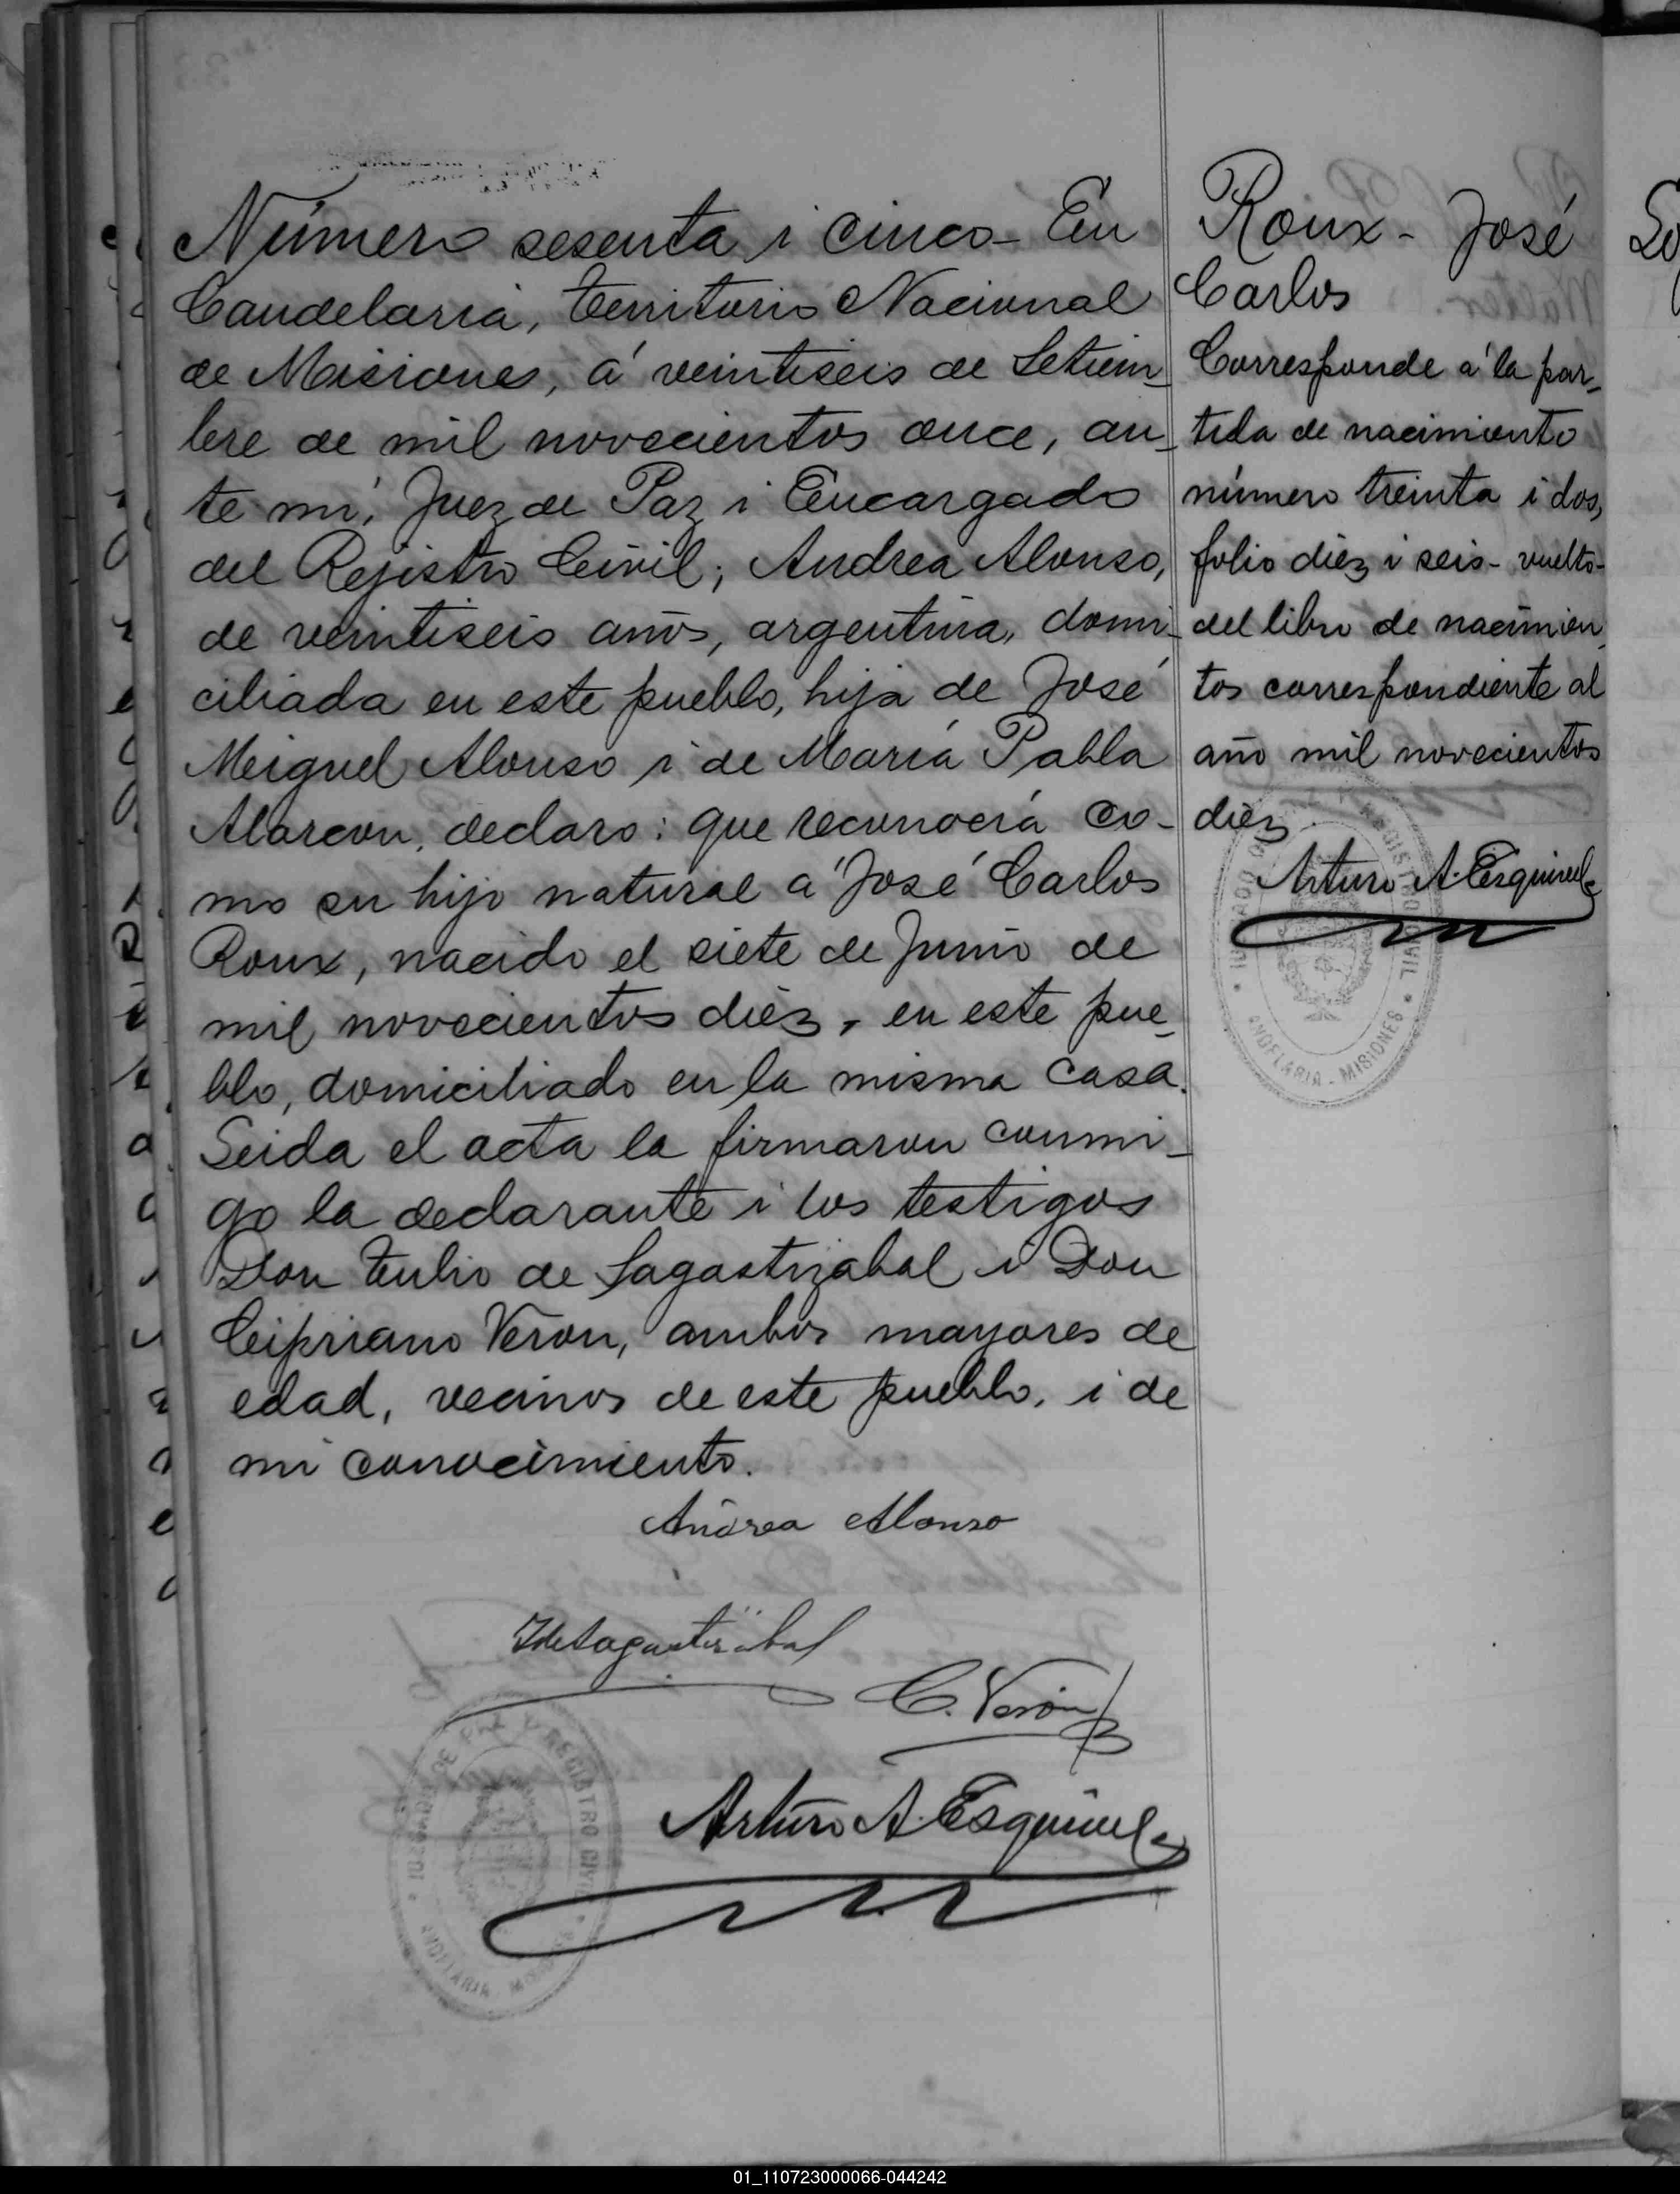 Número sesenta i cinco - En
Candelaria, territorio Nacional
de Misiones, á veintiseis de Setiem-
bre de mil novecientos once, an-
te mí, Juez de Paz i Encargado
del Rejistro Civil; Andrea Alonso,
de veintiseis años, argentina, domi-
ciliada en este pueblo, hija de José
Miguel Alonso i de María Pabla
Alarcon, declaro: que reconocía co-
mo su hijo natural a José Carlos
Roux, nacido el siete de Junio de
mil novecientos diéz, en este pue-
blo, domiciliado en la misma casa.
Leida el acta la firmaron conmi-
go la declarante i los testigos
Don Tulio de Lagastizabal i Don
Cipriano Veron, ambos mayores de
edad, vecinos de este pueblo, i de
mi conocimiento.
Andrea Alonso
TdeLagastizabal
C. Verón
Arturo A. Esquivel
DE PAZ Y REGISTRO CIVIL
Roux - José
Carlos
Corresponde á la par-
tida de nacimiento
número treinta i dos,
folio diéz i seis - vuelto -
del libro de nacimien-
tos correspondiente al
año mil novecientos
diéz
Arturo A. Esquivel
CANDELARIA - MISIONES
01_110723000066-044242